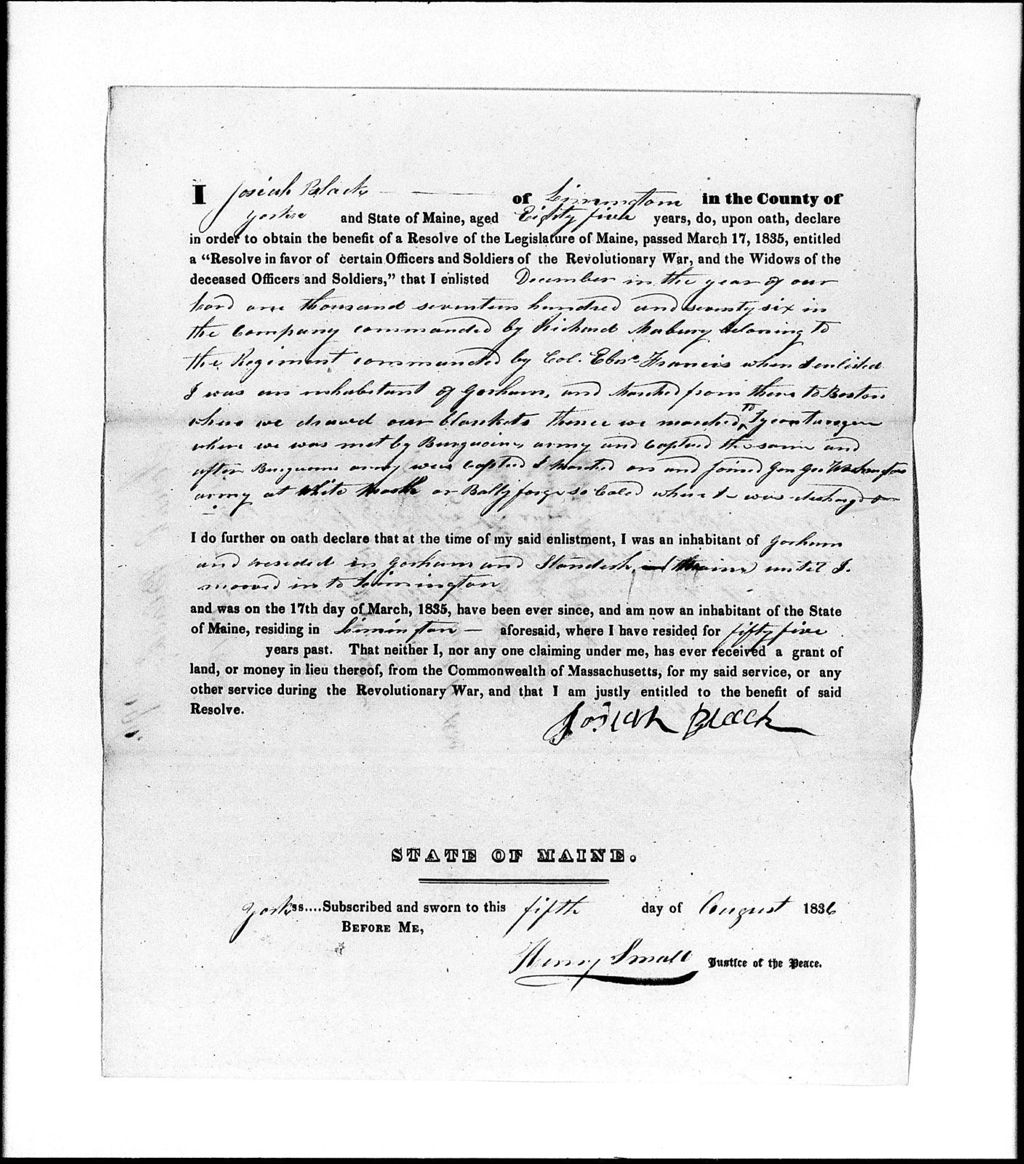 I Josiah Black of Limington in the County of
Yorke and State of Maine, aged Eighty five years, do, upon oath, declare
in order to obtain the benefit of a Resolve of the Legislature of Maine, passed March 17, 1835, entitled
a “Resolve in favor of certain Officers and Soldiers of the Revolutionary War, and the Widows of the
deceased Officers and Soldiers,” that I enlisted December in the year of our
Lord one thousand seventeen hundred and seventy six in
the Company commanded by Richard Mabury beloning to
the Regiment commanded by Col. Ebnr Francis when I enlisted
I was an inhabitant of Gorham, and Marched from there to Boston
where we drawd our blankets thence we marched to
where we was met by army and Capterd the same and
after army was Capterd I Marched on and joined Gen Geo Washingtons
army at White or so Caled where I was
I do further on oath declare that at the time of my said enlistment, I was an inhabitant of Gorham
and resided in Gorham and Standish until I
moved in to Limington
and was on the 17th day of March, 1835, have been ever since, and am now an inhabitant of the State
of Maine, residing in Limington aforesaid, where I have resided for fifty five
years past. That neither I, nor any one claiming under me, has ever received a grant of
land, or money in lieu thereof, from the Commonwealth of Massachusetts, for my said service, or any
other service during the Revolutionary War, and that I am justly entitled to the benefit of said
Resolve.
Josiah Black
STATE OF MAINE.
York ss....Subscribed and sworn to this fifth day of August 1836
BEFORE ME,
Henry Small Justice of the Peace.